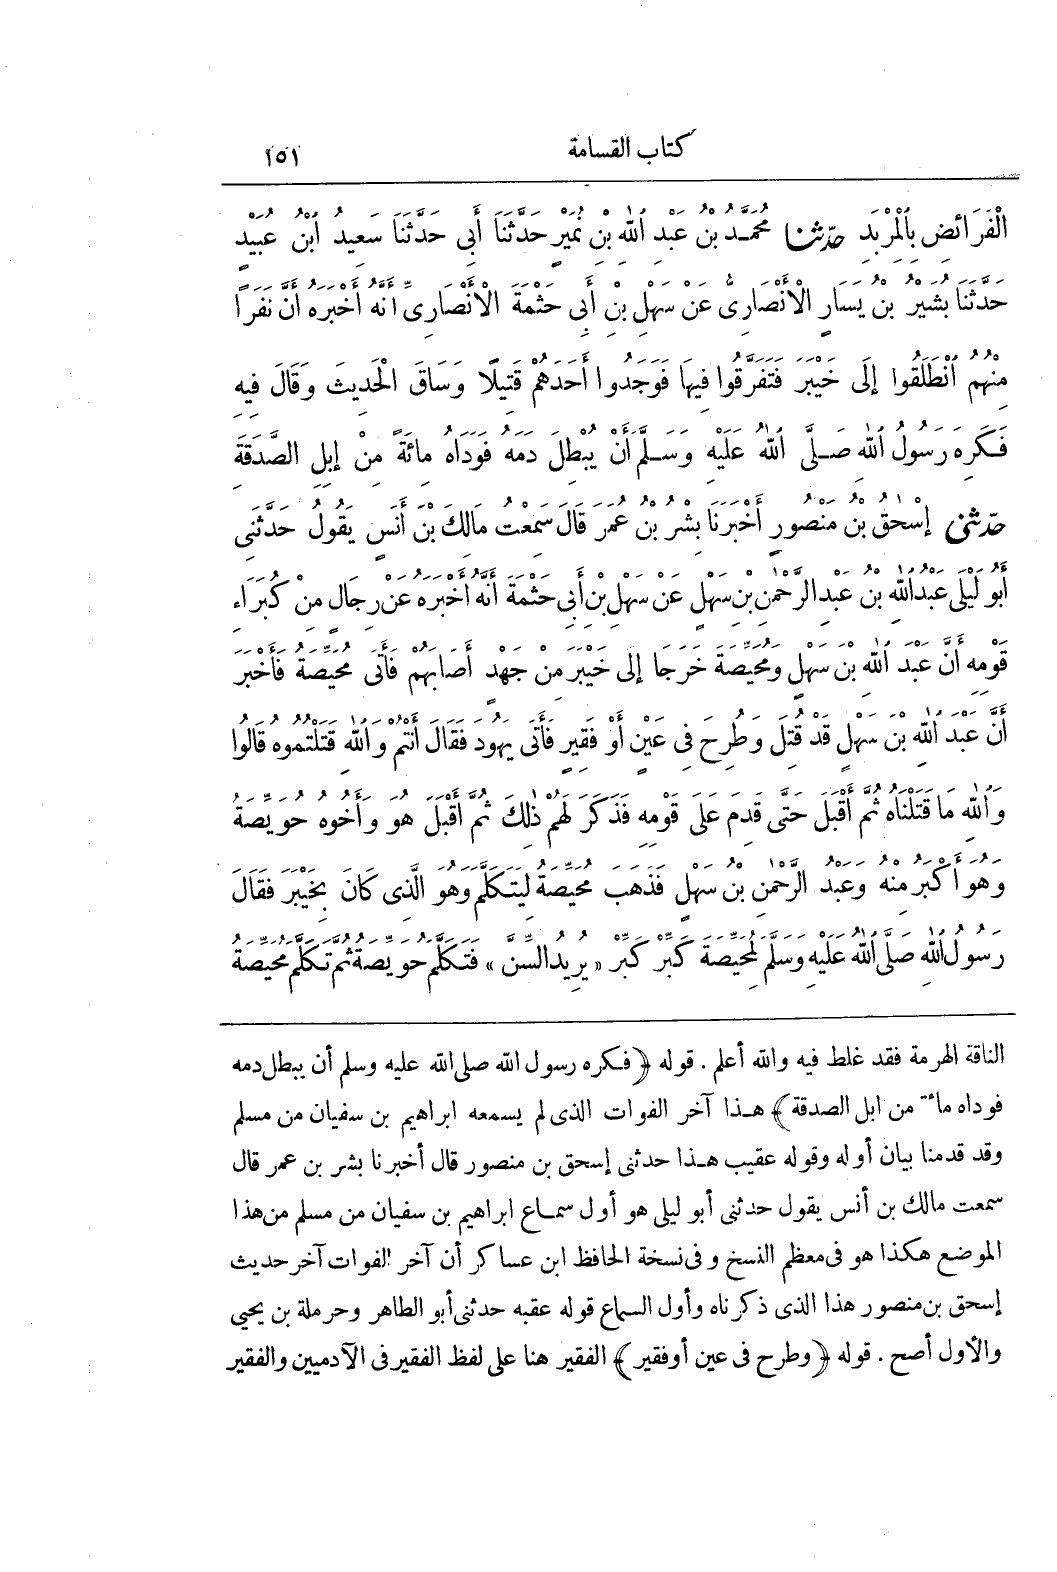 كتاب القسامة ١٥١
الْفَرَائِضِ بِالْمِرْبَدِ حدثنا مُحَمَّدُ بْنُ عَبْدِ اللهِ بْنِ نُمَيْرٍ حَدَّثَنَا أَبِي حَدَّثَنَا سَعِيدُ ابْنُ عُبَيْدٍ
حَدَّثَنَا بُشَيْرُ بْنُ يَسَارٍ الْأَنْصَارِىُّ عَنْ سَهْلِ بْنِ أَبِي حَثْمَةَ الْأَنْصَارِىِّ أَنَّهُ أَخْبَرَهُ أَنَّ نَفَرًا
مِنْهُمُ انْطَلَقُوا إِلَى خَيْبَرَ فَتَفَرَّقُوا فِيهَا فَوَجَدُوا أَحَدَهُمْ قَتِيلًا وَسَاقَ الْحَدِيثَ وَقَالَ فِيهِ
فَكَرِهَ رَسُولُ اللهِ صَلَّى اللهُ عَلَيْهِ وَسَلَّمَ أَنْ يُبْطِلَ دَمَهُ فَوَدَاهُ مِائَةً مِنْ إِبِلِ الصَّدَقَةِ
حدثنى إِسْحَقُ بْنُ مَنْصُورٍ أَخْبَرَنَا بِشْرُ بْنُ عُمَرَ قَالَ سَمِعْتُ مَالِكَ بْنَ أَنَسٍ يَقُولُ حَدَّثَنِى
أَبُو لَيْلَى عَبْدُ اللهِ بْنُ عَبْدِ الرَّحْمٰنِ بْنِ سَهْلٍ عَنْ سَهْلِ بْنِ أَبِي حَثْمَةَ أَنَّهُ أَخْبَرَهُ عَنْ رِجَالٍ مِنْ كُبَرَاءِ
قَوْمِهِ أَنَّ عَبْدَ اللهِ بْنَ سَهْلٍ وَمُحَيِّصَةَ خَرَجَا إِلَى خَيْبَرَ مِنْ جَهْدٍ أَصَابَهُمْ فَأَتَى مُحَيِّصَةُ فَأَخْبَرَ
أَنَّ عَبْدَ اللهِ بْنَ سَهْلٍ قَدْ قُتِلَ وَطُرِحَ فِى عَيْنٍ أَوْ فَقِيرٍ فَأَتَى يَهُودَ فَقَالَ أَنْتُمْ وَاللهِ قَتَلْتُمُوهُ قَالُوا
وَاللهِ مَا قَتَلْنَاهُ ثُمَّ أَقْبَلَ حَتَّى قَدِمَ عَلَى قَوْمِهِ فَذَكَرَ لَهُمْ ذٰلِكَ ثُمَّ أَقْبَلَ هُوَ وَأَخُوهُ حُوَيِّصَةُ
وَهُوَ أَكْبَرُ مِنْهُ وَعَبْدُ الرَّحْمٰنِ بْنُ سَهْلٍ فَذَهَبَ مُحَيِّصَةُ لِيَتَكَلَّمَ وَهُوَ الَّذِى كَانَ بِخَيْبَرَ فَقَالَ
رَسُولُ اللهِ صَلَّى اللهُ عَلَيْهِ وَسَلَّمَ لِمُحَيِّصَةَ كَبِّرْ كَبِّرْ « يُرِيدُ السِّنَّ » فَتَكَلَّمَ حُوَيِّصَةُ ثُمَّ تَكَلَّمَ مُحَيِّصَةُ
الناقة الهرمة فقد غلط فيه والله أعلم . قوله ﴿فكره رسول الله صلى الله عليه وسلم أن يبطل دمه
فوداه مائة من ابل الصدقة﴾ هذا آخر الفوات الذى لم يسمعه ابراهيم بن سفيان من مسلم
وقد قدمنا بيان أوله وقوله عقيب هذا حدثنى إسحق بن منصور قال أخبرنا بشر بن عمر قال
سمعت مالك بن أنس يقول حدثنى أبو ليلى هو أول سماع ابراهيم بن سفيان من مسلم من هذا
الموضع هكذا هو فى معظم النسخ وفى نسخة الحافظ ابن عساكر أن آخر الفوات آخر حديث
إسحق بن منصور هذا الذى ذكرناه وأول السماع قوله عقبه حدثنى أبو الطاهر وحرملة بن يحيى
والأول أصح . قوله ﴿وطرح فى عين أوفقير﴾ الفقير هنا على لفظ الفقير فى الآدميين والفقير